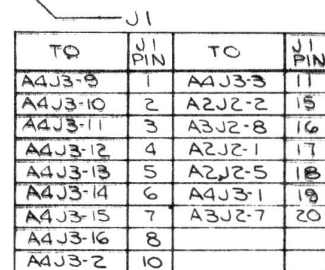 J1
TO J1 PIN TO J1 PIN
A4J3-9 1 A4J3-3 11
A4J3-10 2 A2J2-2 15
A4J3-11 3 A3J2-8 16
A4J3-12 4 A2J2-1 17
A4J3-13 5 A2J2-5 18
A4J3-14 6 A4J3-1 19
A4J3-15 7 A3J2-7 20
A4J3-16 8
A4J3-2 10